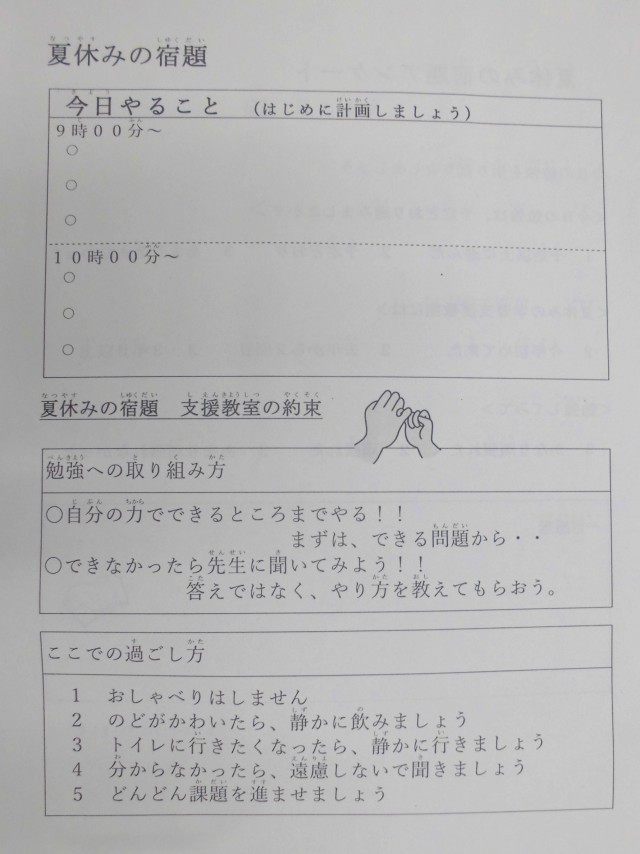 夏休みの宿題
今日やること （はじめに計画しましょう）
９時００分～
○
○
○
１０時００分～
○
○
○
夏休みの宿題　支援教室の約束
勉強への取り組み方
○自分の力でできるところまでやる！！
まずは、できる問題から・・
○できなかったら先生に聞いてみよう！！
答えではなく、やり方を教えてもらおう。
ここでの過ごし方
１　おしゃべりはしません
２　のどがかわいたら、静かに飲みましょう
３　トイレに行きたくなったら、静かに行きましょう
４　分からなかったら、遠慮しないで聞きましょう
５　どんどん課題を進ませましょう